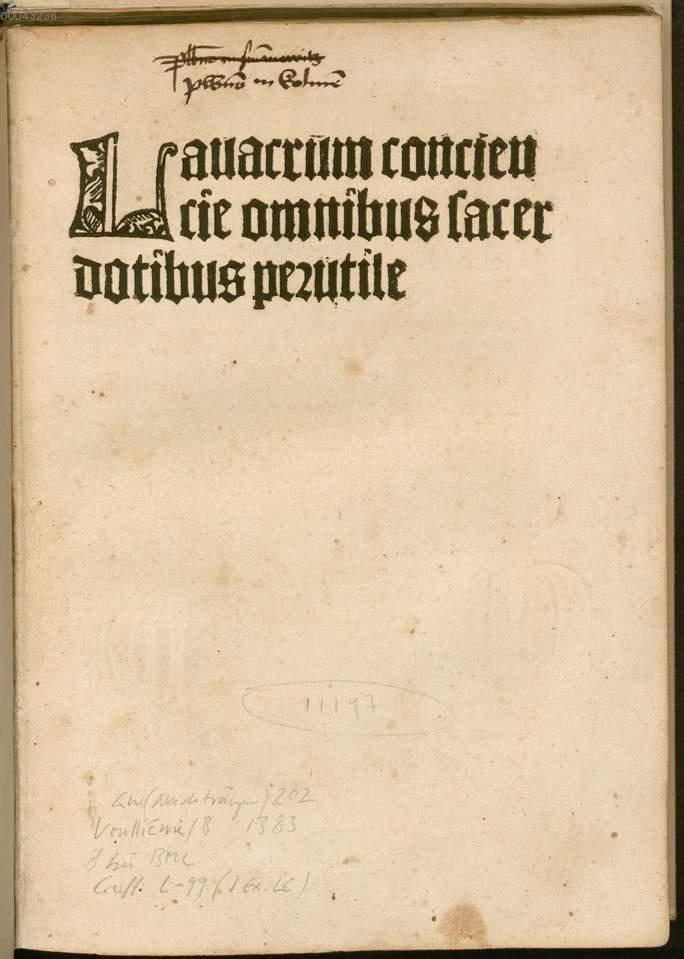 00043236
in
Lavacrum concien
cie omnibus sacer
dotibus perutile
11197
GW (Nachträge) 202
Voulliéme/B 1383
BMC
Goff. L-99 (1 Ex. LC)